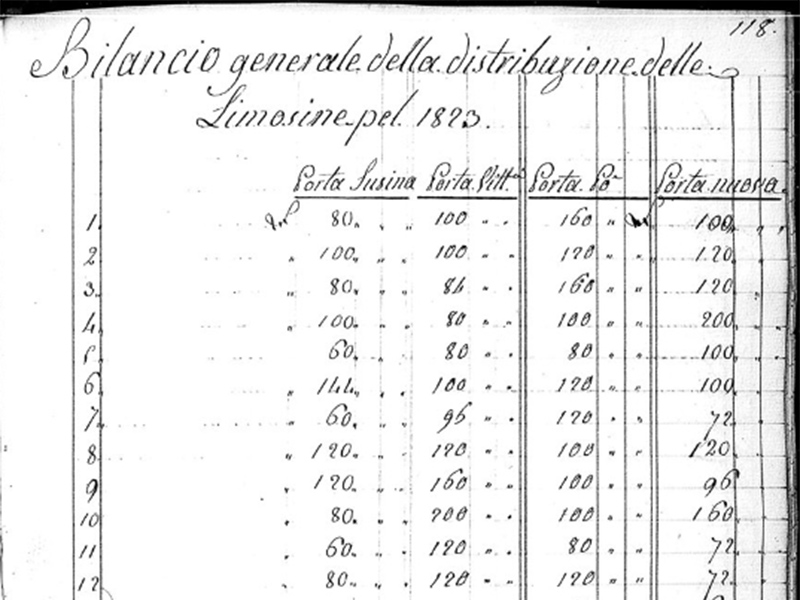 118.
Bilancio generale della distribuzione delle
Limosine pel 1823.
Porta Susina Porta Vitt.a Porta Po Porta nuova
1. 80 100 160 100
2 100 100 120 120
3. 80 84 160 120
4. 100 80 100 200
5. 60 80 80 100
6 144 100 120 100
7. 60 96 120 72
8. 120 120 100 120
9 120 160 100 96
10 80 200 100 160
11 60 120 80 72
12 80 120 120 72